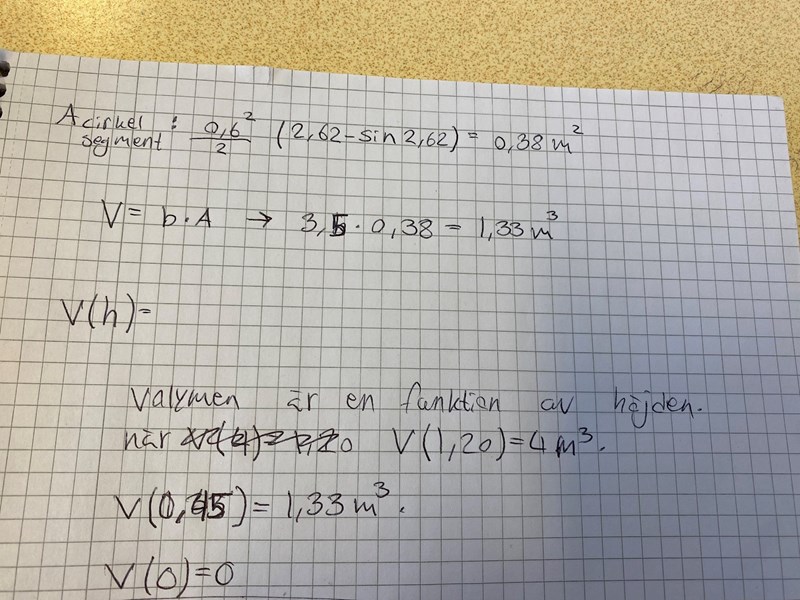 A cirkel segment : 0,6²/2 (2,62-sin 2,62) = 0,38 m²
V = b·A → 3,5·0,38 = 1,33 m³
V(h)=
Valymen är en funktion av höjden.
när V(1,20)=4m³.
V(0,45) = 1,33 m³.
V(0)=0